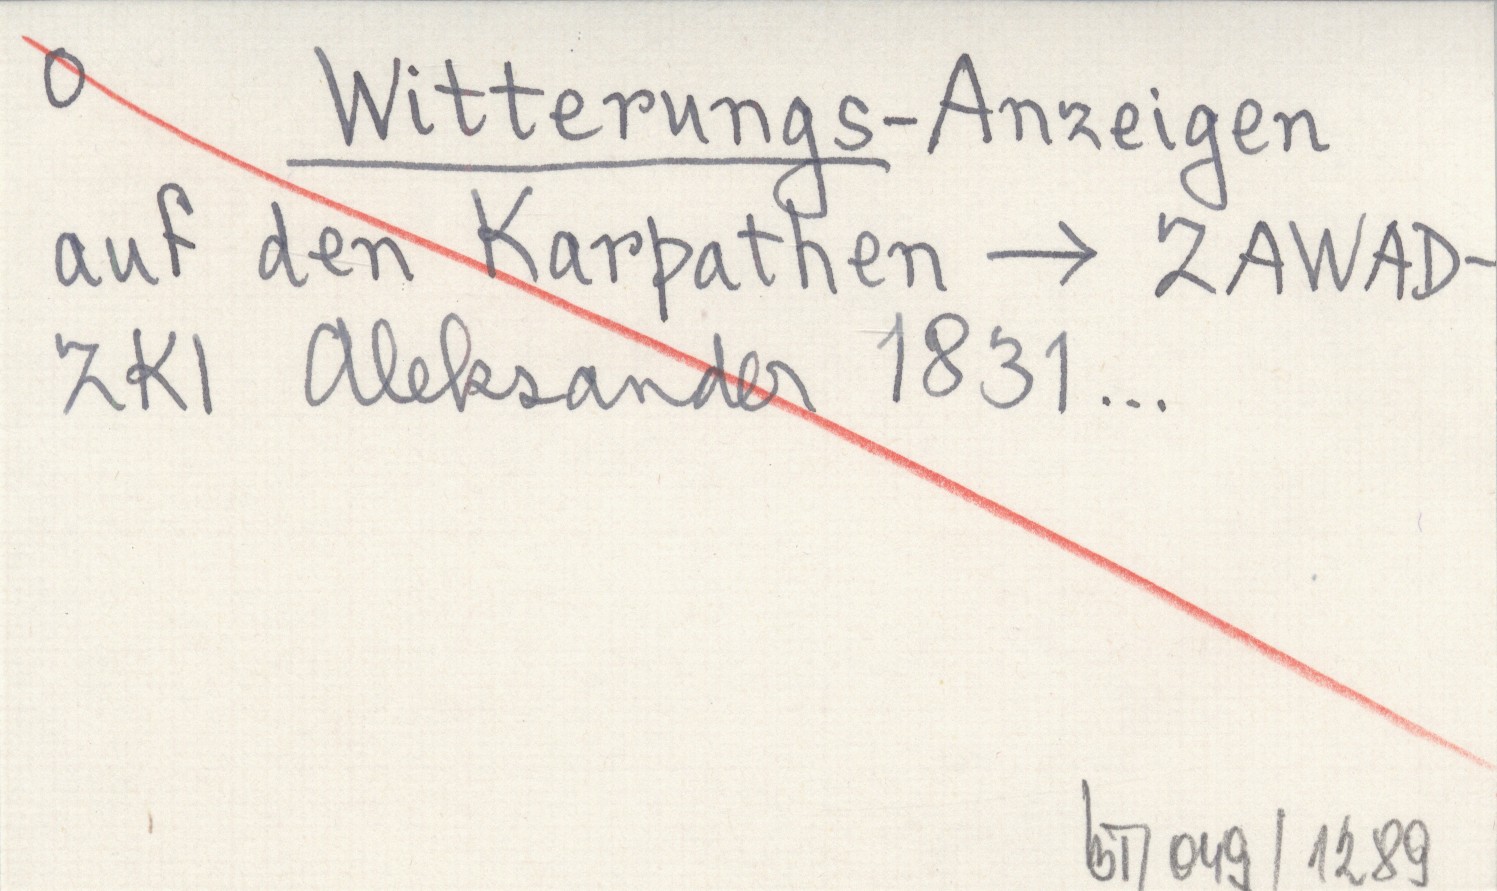 O Witterungs-Anzeigen
auf den Karpathen → ZAWAD-
ZKI Aleksander 1831...
049/1289